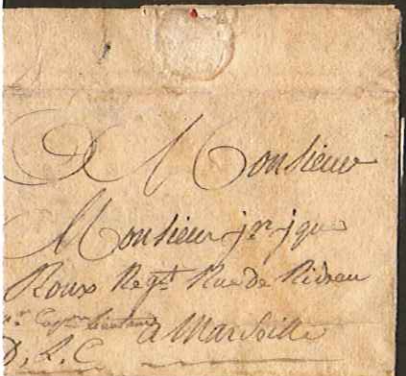 A Monsieur
Monsieur jn. jque
Roux Negt. Rue de Rideau
Capne
a Marseille
D. L. C